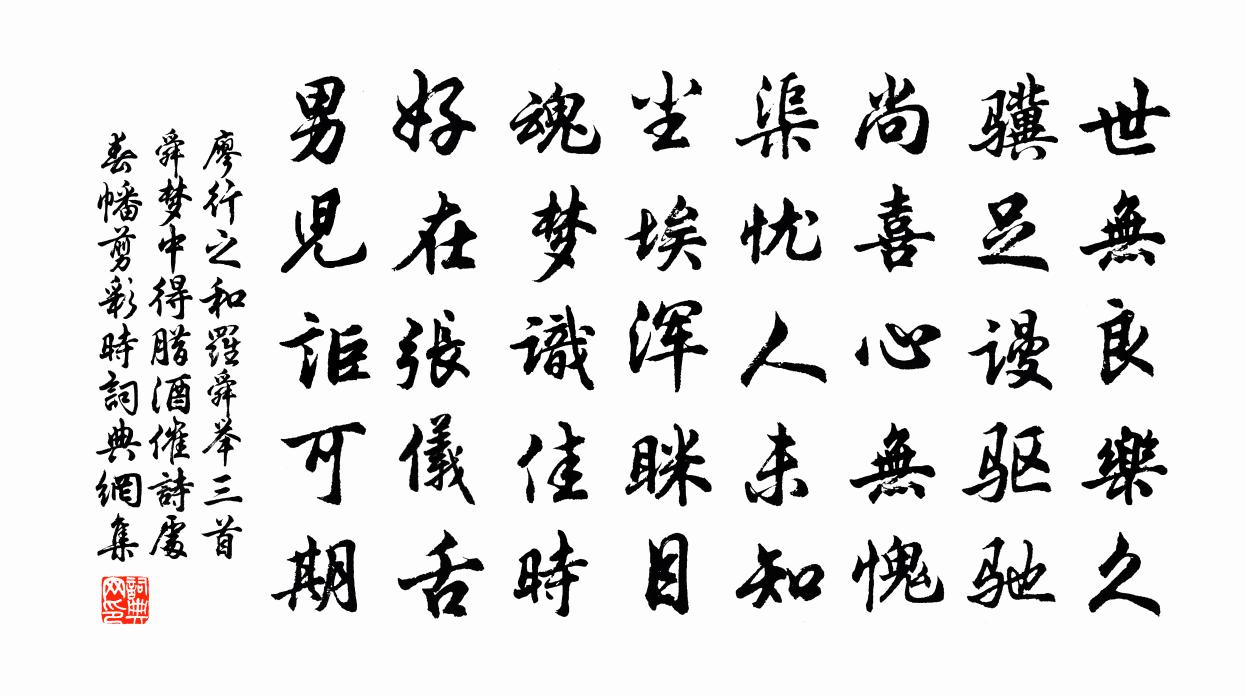 世無良樂久
骥足谩驱驰
尚喜心無愧
渠忧人未知
尘埃浑眯目
魂梦識佳時
好在張儀舌
男児詎可期
廖行之和羅舜举三首
舜梦中得腊酒催詩處
春幡剪彩時詞典網集
詞典网印